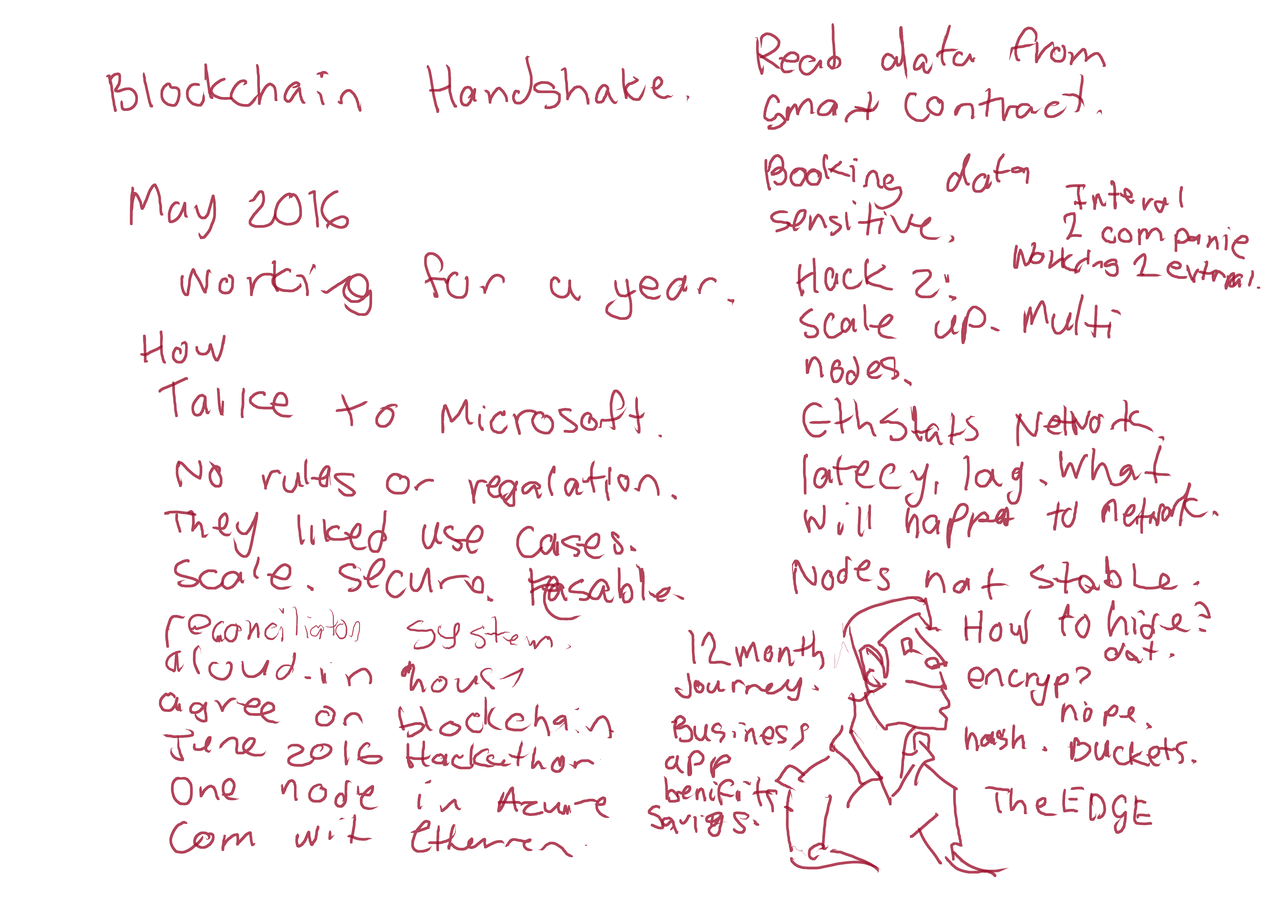 Blockchain Handshake.
May 2016
Working for a year.
How
Talke to Microsoft.
No rules or regalation.
They liked use cases.
scale. secure.
reconciliaton system.
aloud in hous
agree on blockchain
June 2016 Hackathon
One node in Azure
Com wit
Read data from
smart contract.
Booking data
sensitive.
Interal
2 companie
Working 2 extrnal.
Hack 2:
scale up. Multi
nodes.
EthStats Network.
latecy, lag. What
will happen to network.
Nodes not stable.
12 month
Journey.
Business
app
benifits
Savigs.
How to hide?
dat.
encryp?
nope.
hash. Buckets.
The EDGE